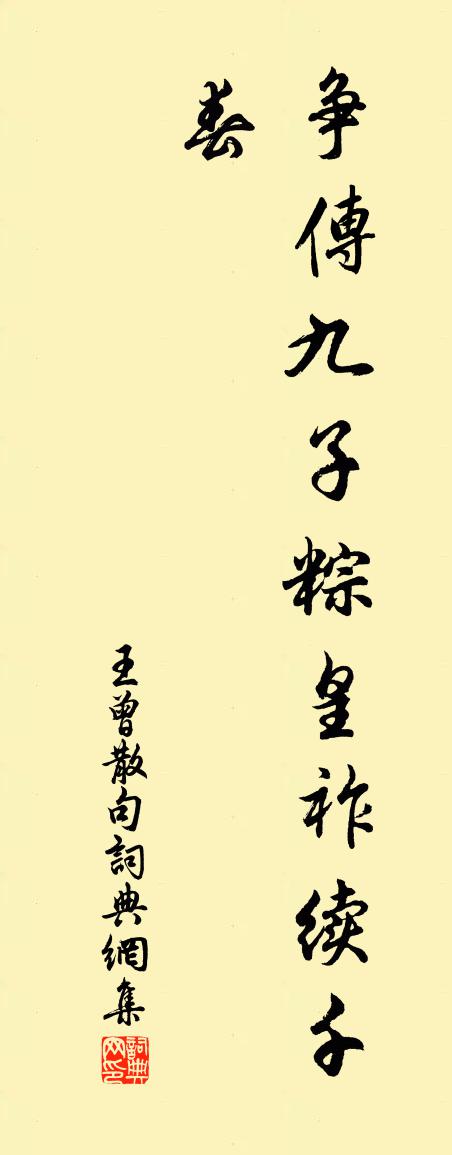 争傳九子粽皇祚续千
春
王曾散句詞典網集
詞典
网印